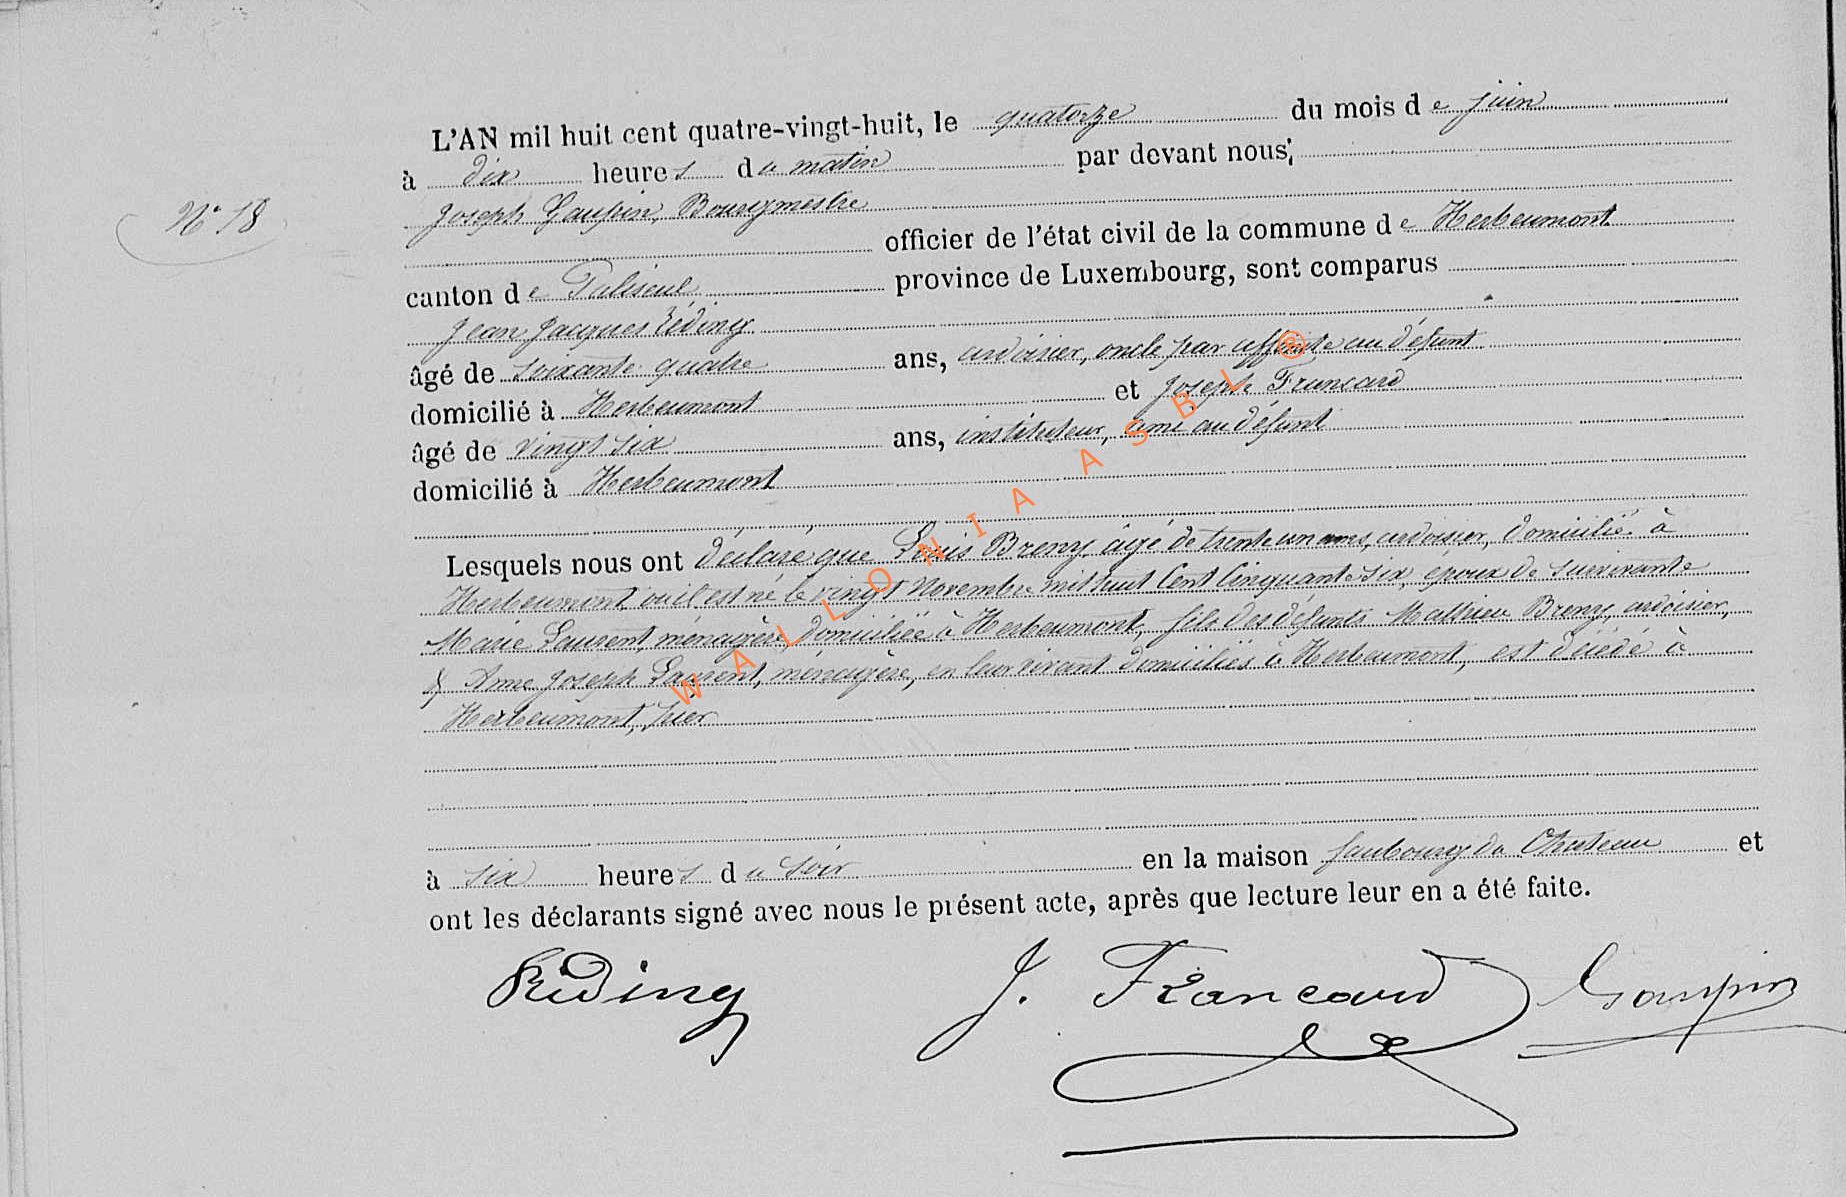 L'AN mil huit cent quatre-vingt-huit, le quatorze du mois de juin
à dix heures du matin par devant nous;
N° 18
Joseph Gaupin, Bourgmestre
officier de l'état civil de la commune de Herbeumont
canton de Paliseul province de Luxembourg, sont comparus
Jean Jacques Réding
âgé de soixante quatre ans, ardoisier, oncle par affinité au défunt
domicilié à Herbeumont et Joseph Francard
âgé de vingt six ans, instituteur, ami au défunt
domicilié à Herbeumont
Lesquels nous ont déclaré que Louis Breny âgé de trente un ans, ardoisier, domicilié à
Herbeumont où il est né le vingt Novembre mil huit Cent Cinquante six, époux de survivante
Marie Laurent, ménagère, domiciliée à Herbeumont, fils des défunts Mathieu Breny, ardoisier,
& Anne Joseph Laurent, ménagère, en leur vivant domiciliés à Herbeumont, est décédé à
Herbeumont, hier
à six heures du soir en la maison faubourg du Chateau et
ont les déclarants signé avec nous le présent acte, après que lecture leur en a été faite.
Réding J. Francard Gaupin
WALLONIA ASBL ®